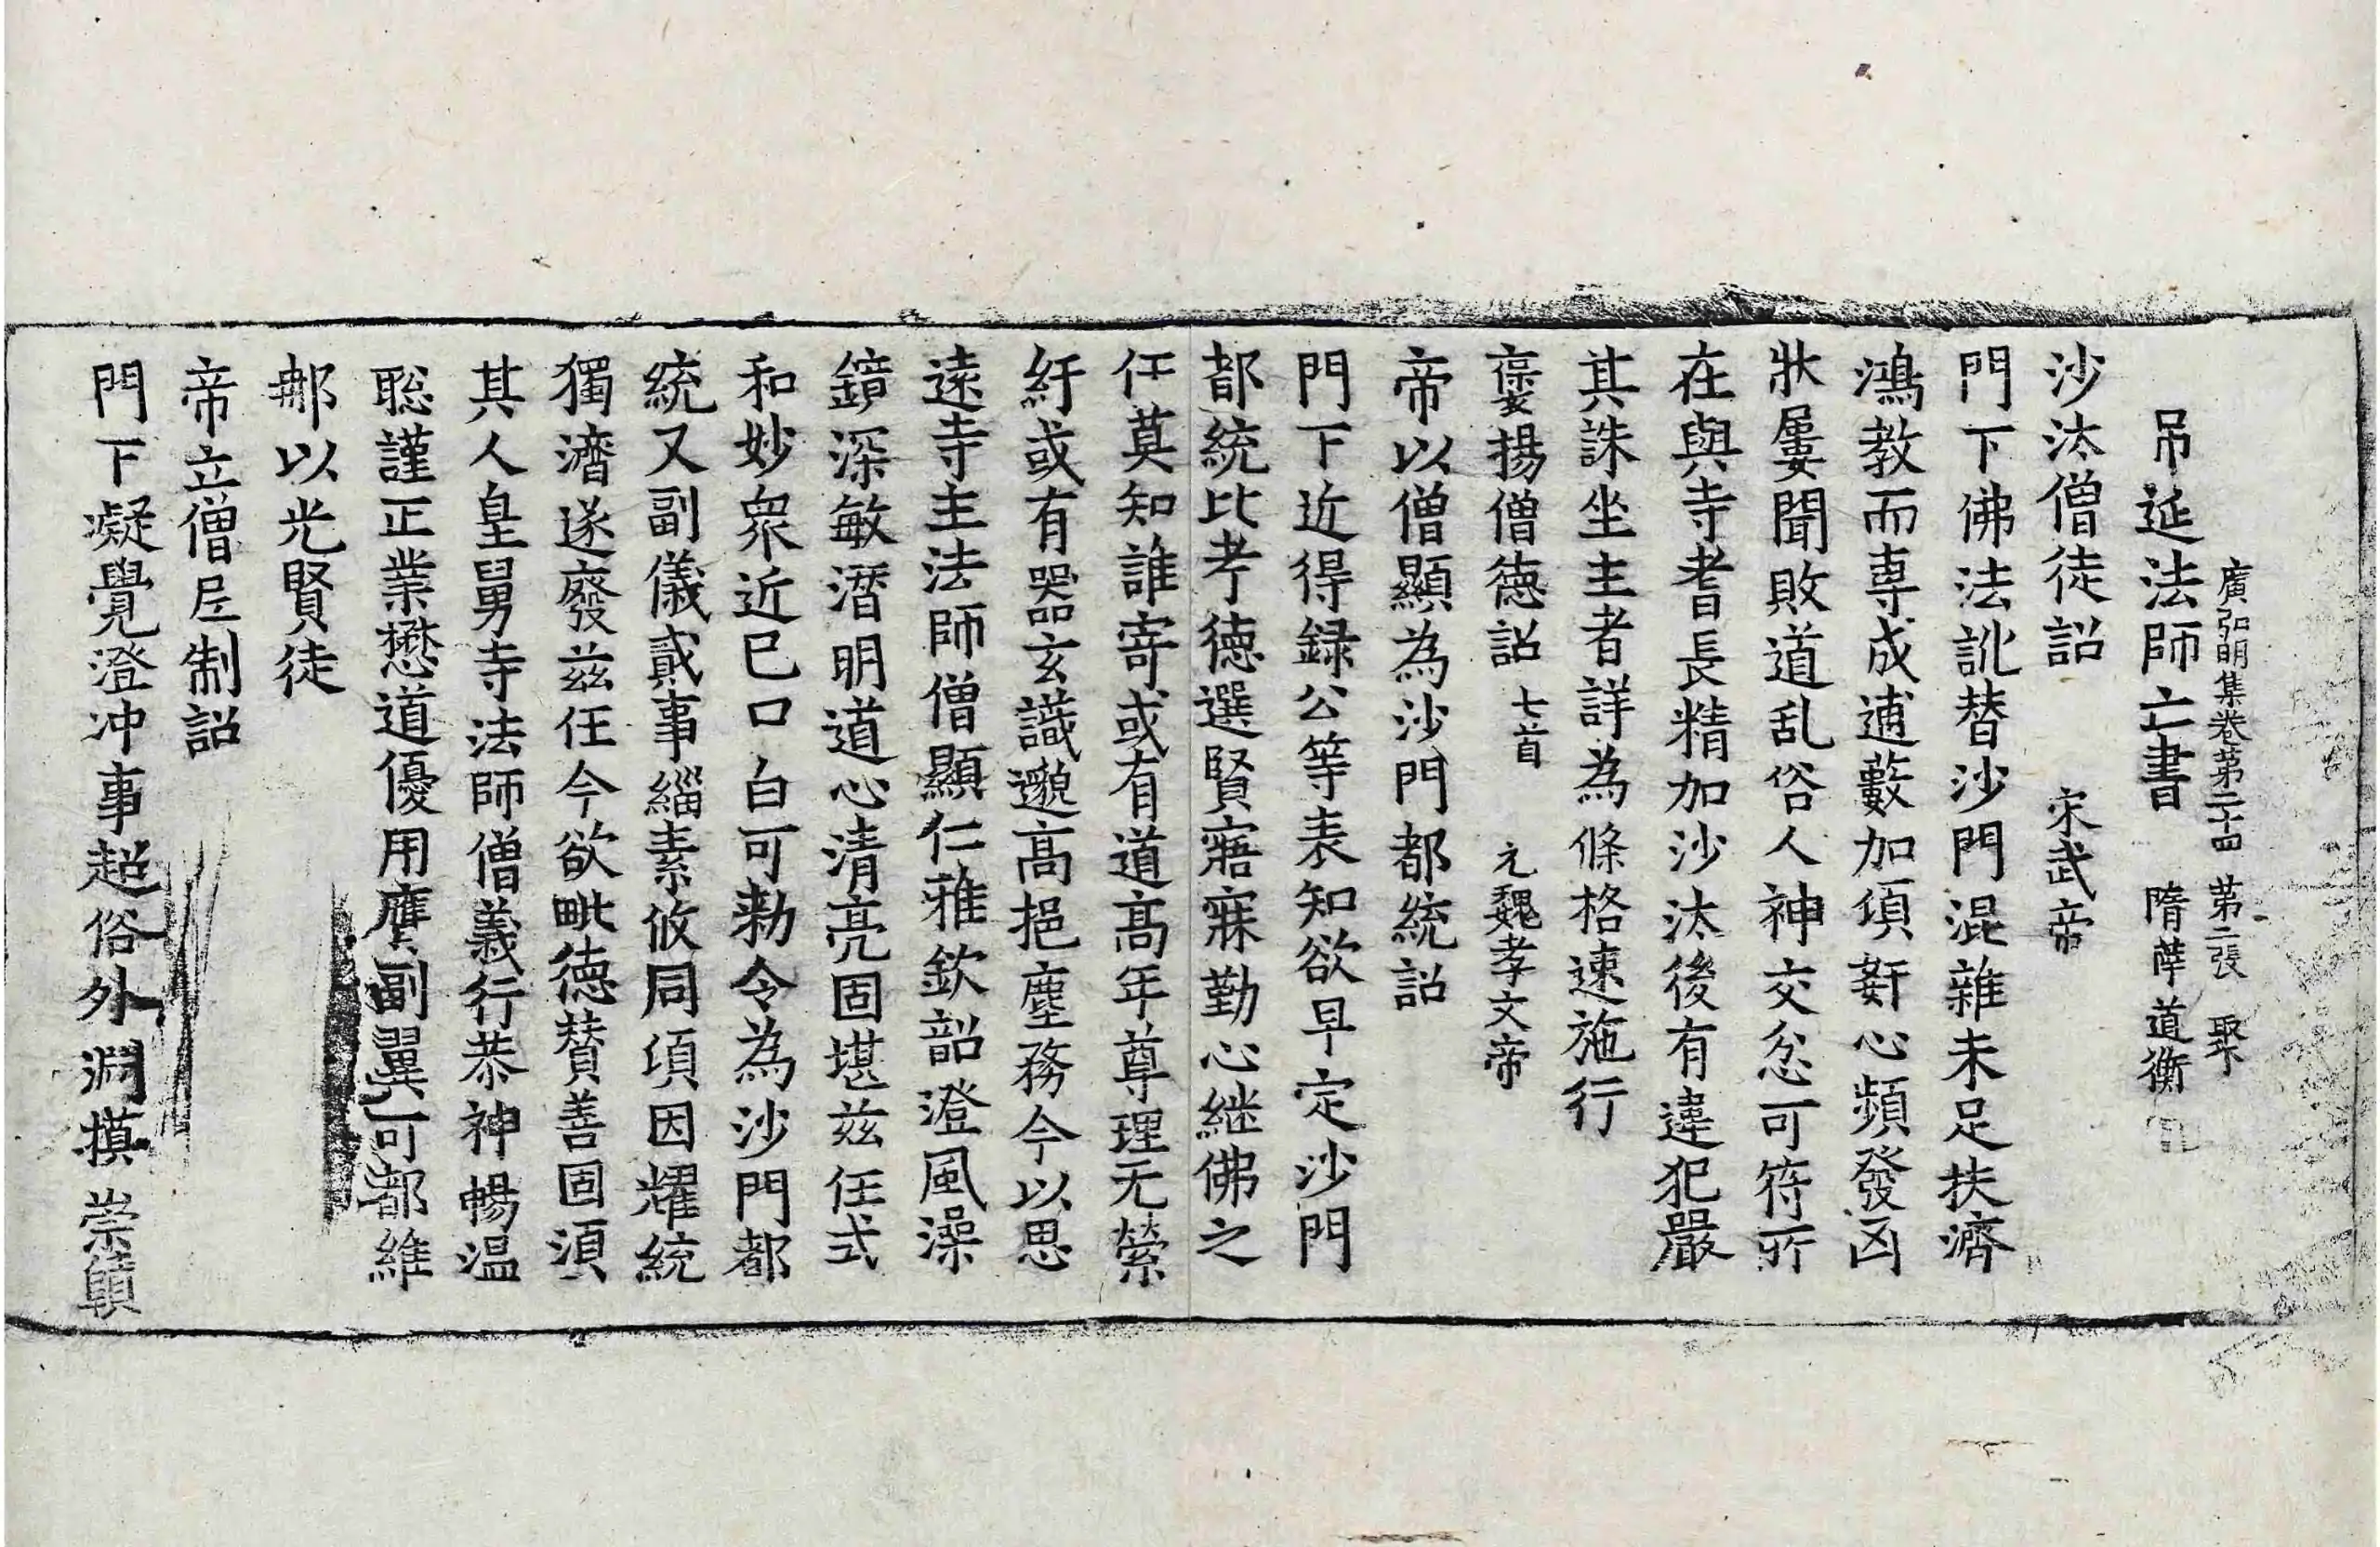 廣弘明集卷第二十四 第二張 聚
吊延法師亡書 隋薛道衡
沙汰僧徒詔 宋武帝
門下佛法訛替沙門混雜未足扶濟
鴻教而專成逋藪加頃姧心頻發凶
狀屢聞敗道乱俗人神交忿可符所
在與寺耆長精加沙汰後有違犯嚴
其誅坐主者詳為條格速施行
褒揚僧德詔 七首 元魏孝文帝
帝以僧顯為沙門都統詔
門下近得録公等表知欲早定沙門
都統比考德選賢寤寐勤心継佛之
任莫知誰寄或有道高年尊理无縈
紆或有器玄識邈高挹塵務今以思
遠寺主法師僧顯仁雅欽韶澄風澡
鏡深敏潛明道心清亮固堪茲任式
和妙衆近已口白可勑令為沙門都
統又副儀貳事緇素攸同頃因耀統
獨濟遂廢茲任今欲毗德賛善固須
其人皇舅寺法師僧義行恭神暢温
聡謹正業懋道優用膺副翼可都維
那以光賢徒
帝立僧尼制詔
門下凝覺澄冲事超俗外淵摸崇賾